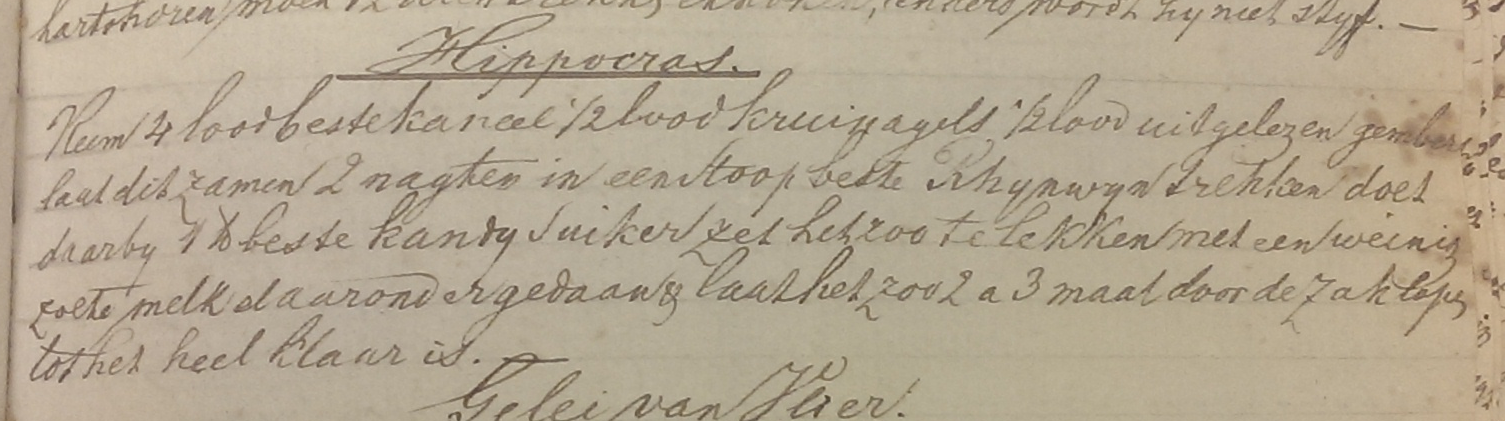 hartshoren, moet wordt hy niet styf. —
Hippocras.
Neem 4 lood beste kaneel 1/2 lood kruinagels 1/2 lood uitgelezen gember
laat dit zamen 2 nagten in een stoop beste Rhynwyn trekken doet
daarby 1 ℔ beste kandy suiker zet het zoo te lekken met een weinig
zoete melk daaronder gedaan & laat het zoo 2 a 3 maal door de zak lope
tot het heel klaar is. —
Gelei van Vlier.